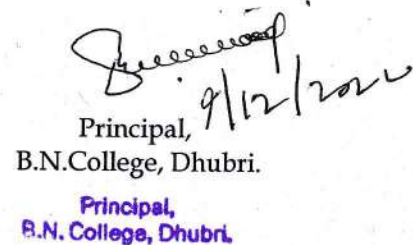 9/12/2020
Principal,
B.N.College, Dhubri.
Principal,
B.N. College, Dhubri.